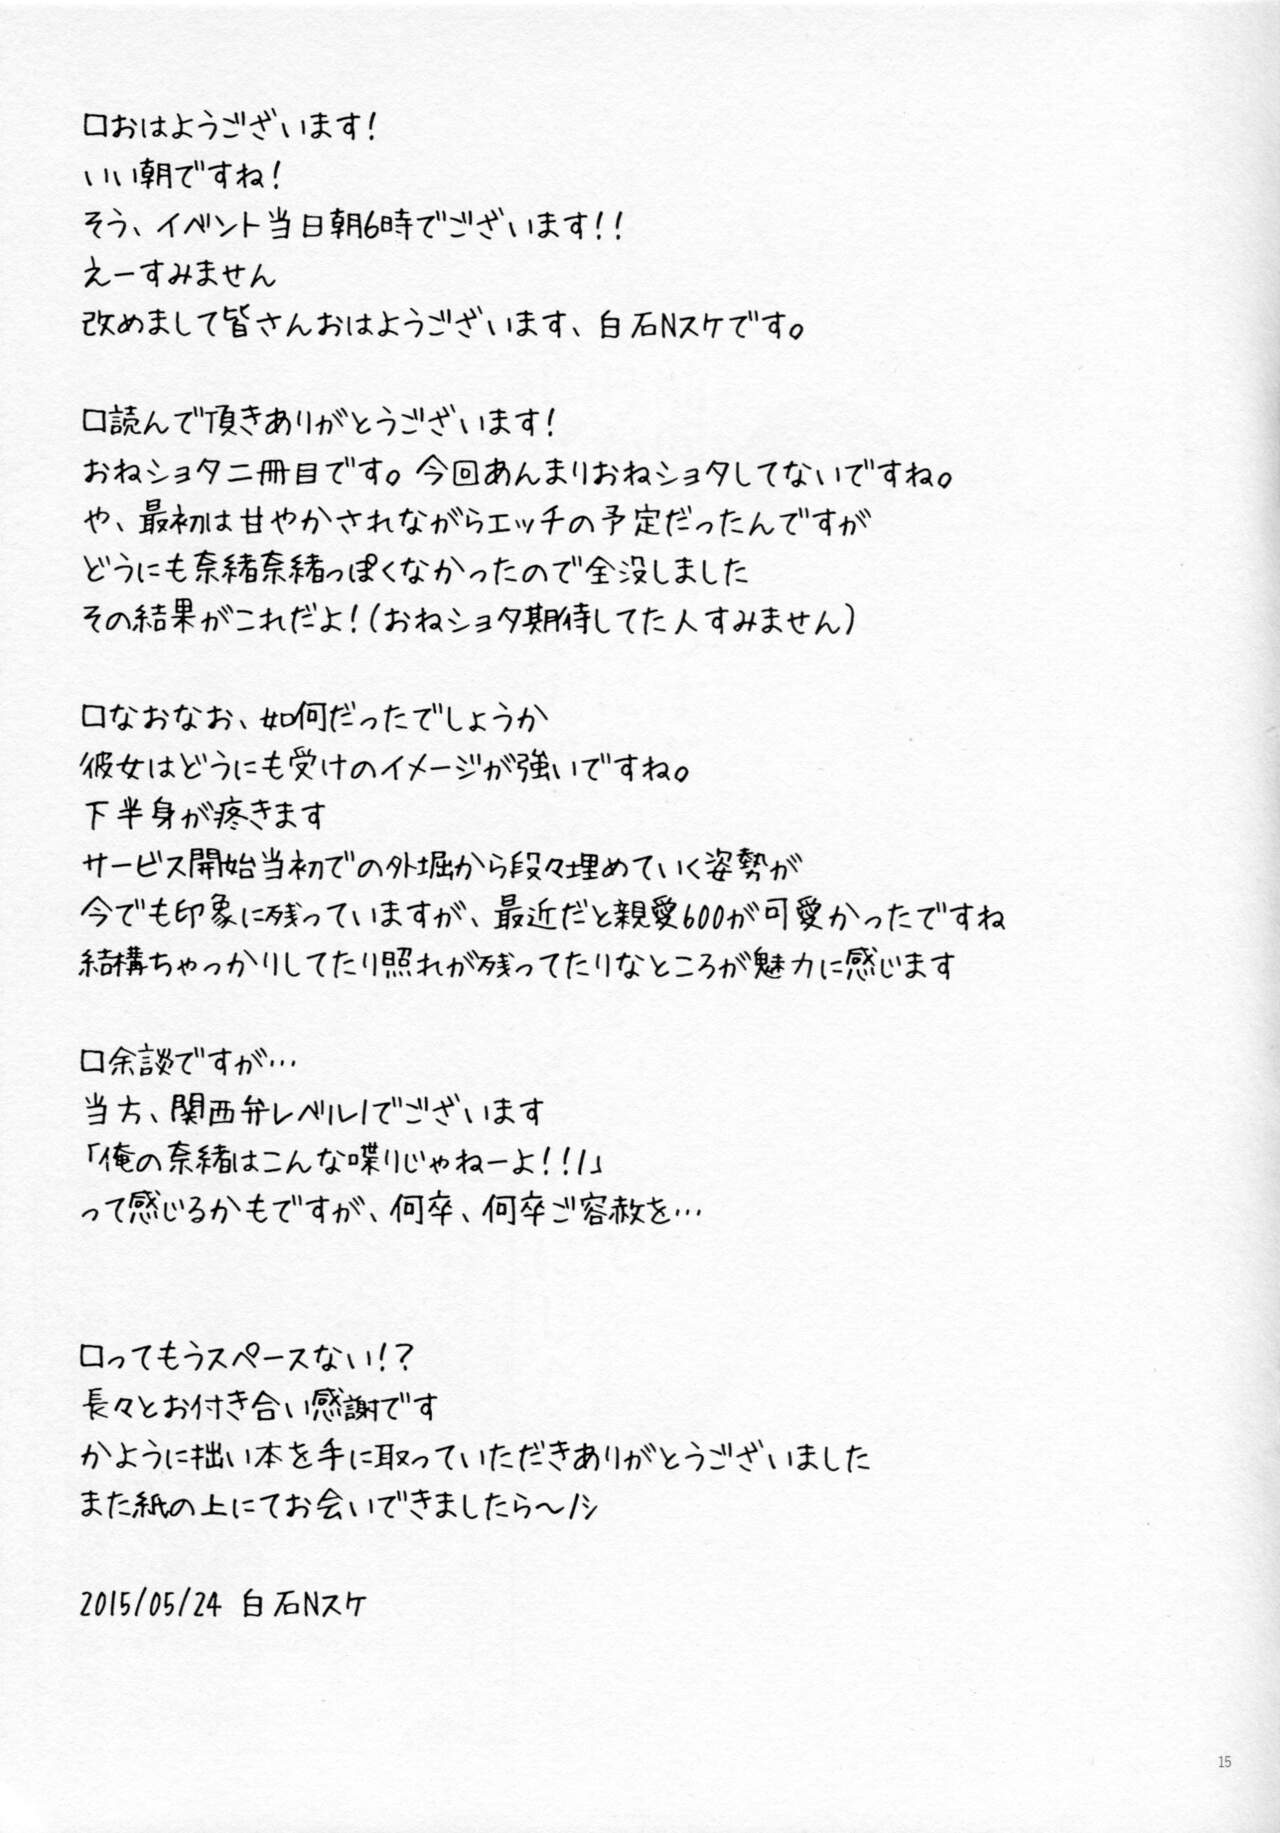 □おはようございます!
いい朝ですね!
そう、イベント当日朝6時でございます!!
えーすみません
改めまして皆さんおはようございます、白石Nスケです。
□読んで頂きありがとうございます!
おねショタ二冊目です。今回あんまりおねショタしてないですね。
や、最初は甘やかされながらエッチの予定だったんですが
どうにも奈緒奈緒っぽくなかったので全没しました
その結果がこれだよ!(おねショタ期待してた人すみません)
□なおなお、如何だったでしょうか
彼女はどうにも受けのイメージが強いですね。
下半身が疼きます
サービス開始当初での外堀から段々埋めていく姿勢が
今でも印象に残っていますが、最近だと親愛600が可愛かったですね
結構ちゃっかりしてたり照れが残ってたりなところが魅力に感じます
□余談ですが…
当方、関西弁レベル1でございます
「俺の奈緒はこんな喋りじゃねーよ!!1」
って感じるかもですが、何卒、何卒ご容赦を…
□ってもうスペースない!?
長々とお付き合い感謝です
かように拙い本を手に取っていただきありがとうございました
また紙の上にてお会いできましたら～ノシ
2015/05/24 白石Nスケ
15